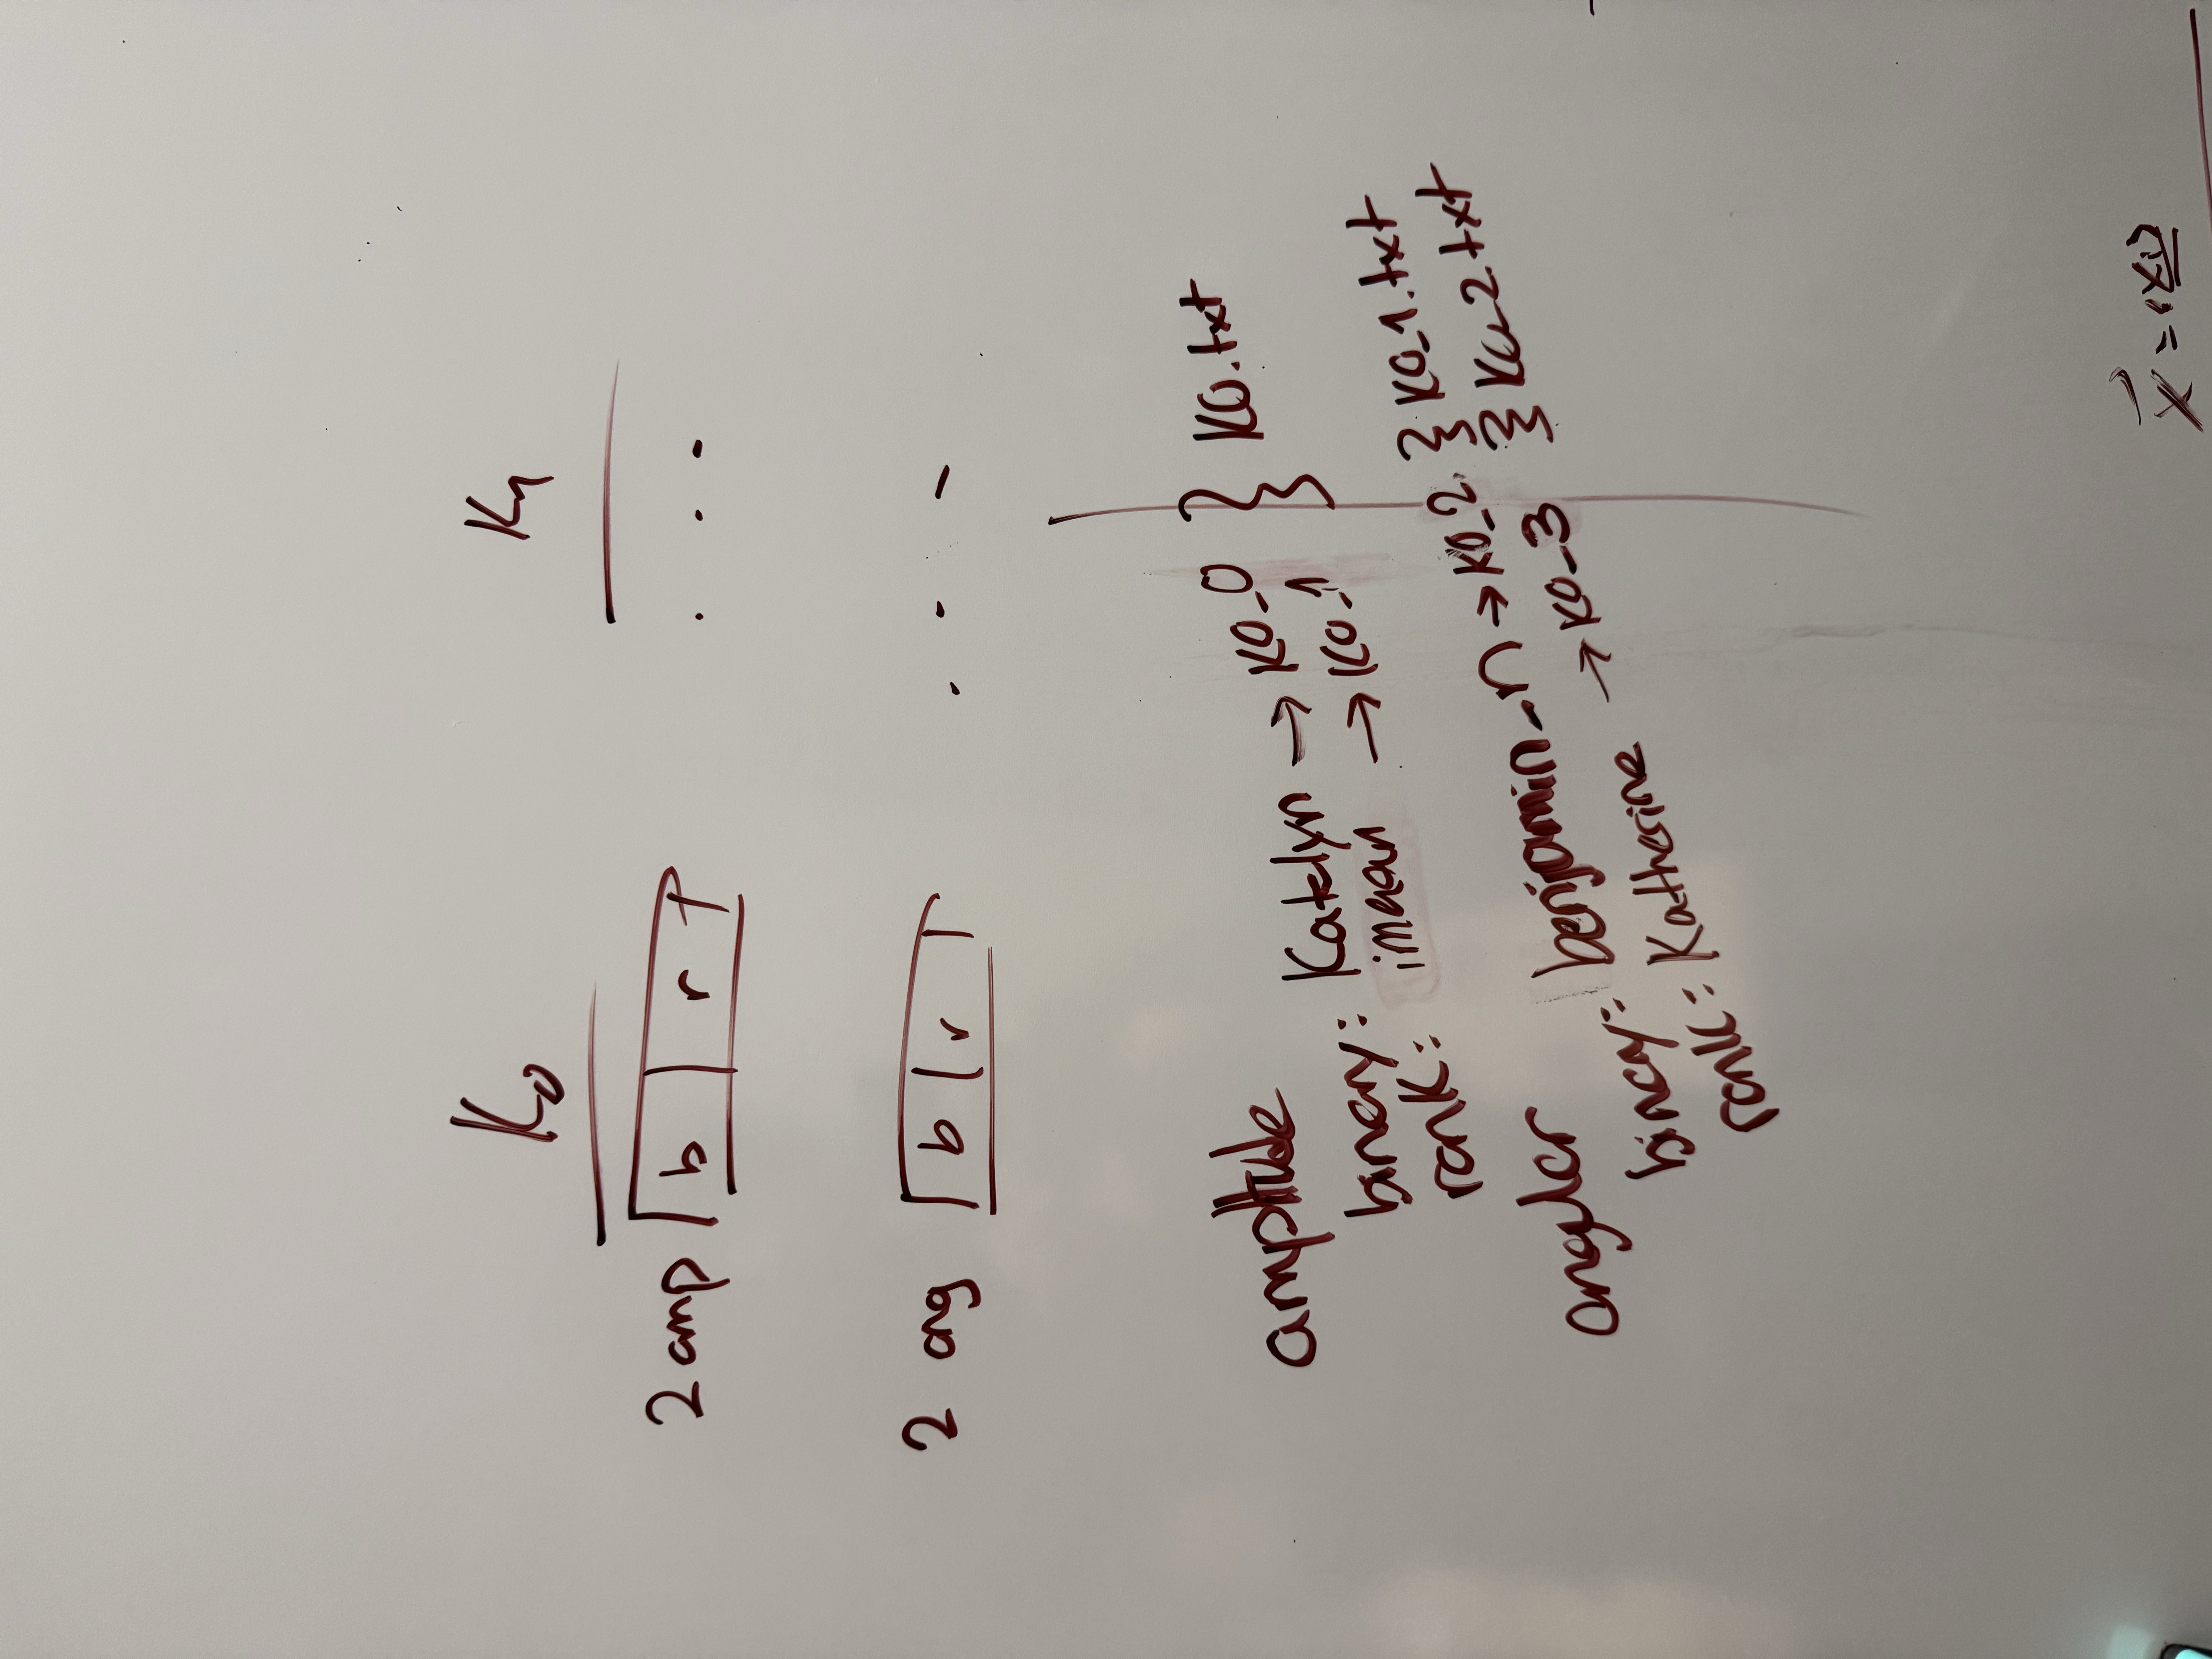 K0
2 amp b r ...
2 ang b r ...
amplitude
binary: Katelyn → K0-0 } K0.txt
rank: imaan → K0-1
angular
binary: benjamin-n → K0-2 } K0-1.txt
rank: Katharine → K0-3 } K02.txt